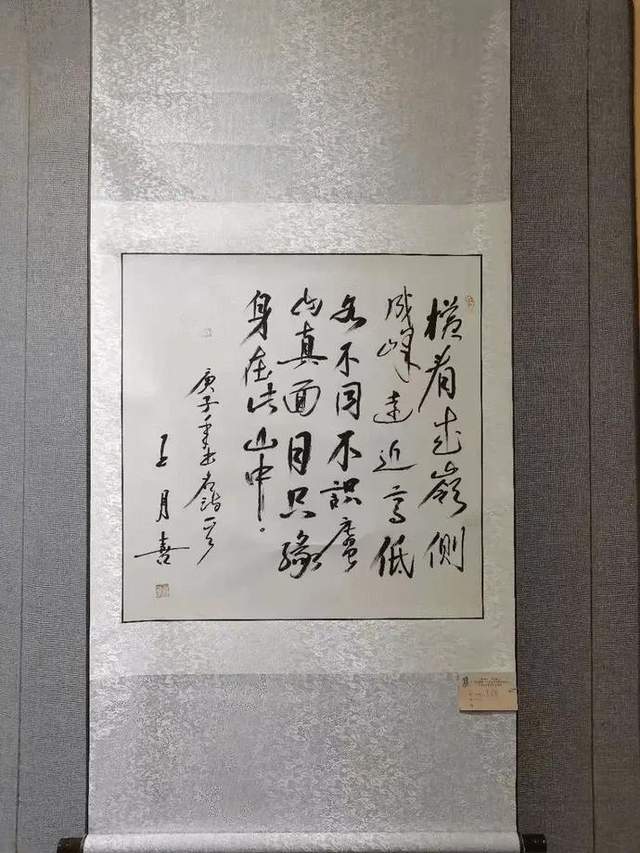 横看成岭侧
成峰远近高低
各不同不识庐
山真面目只缘
身在此山中
庚子年书古诗一首
王月喜